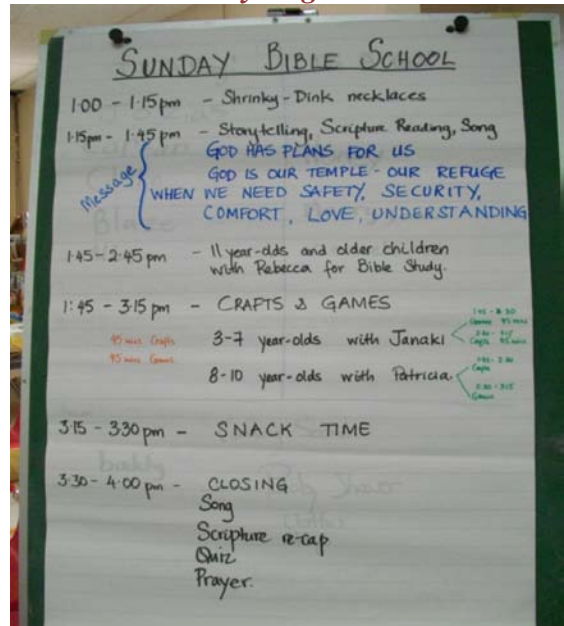 SUNDAY BIBLE SCHOOL
1·00 - 1·15pm - Shrinky-Dink necklaces
1·15pm - 1·45pm - Storytelling, Scripture Reading, Song
Message
GOD HAS PLANS FOR US
GOD IS OUR TEMPLE - OUR REFUGE
WHEN WE NEED SAFETY, SECURITY,
COMFORT, LOVE, UNDERSTANDING
1·45 - 2·45pm - 11 year-olds and older children
with Rebecca for Bible Study.
1:45 - 3·15 pm - CRAFTS & GAMES
45 mins Crafts
45 mins Games
3-7 year-olds with Janaki
Games 45 mins
Crafts 45 mins
8-10 year-olds with Patricia
Crafts
Games
3·15 - 3·30pm - SNACK TIME
3·30 - 4·00 pm - CLOSING
Song
Scripture re-cap
Quiz
Prayer.